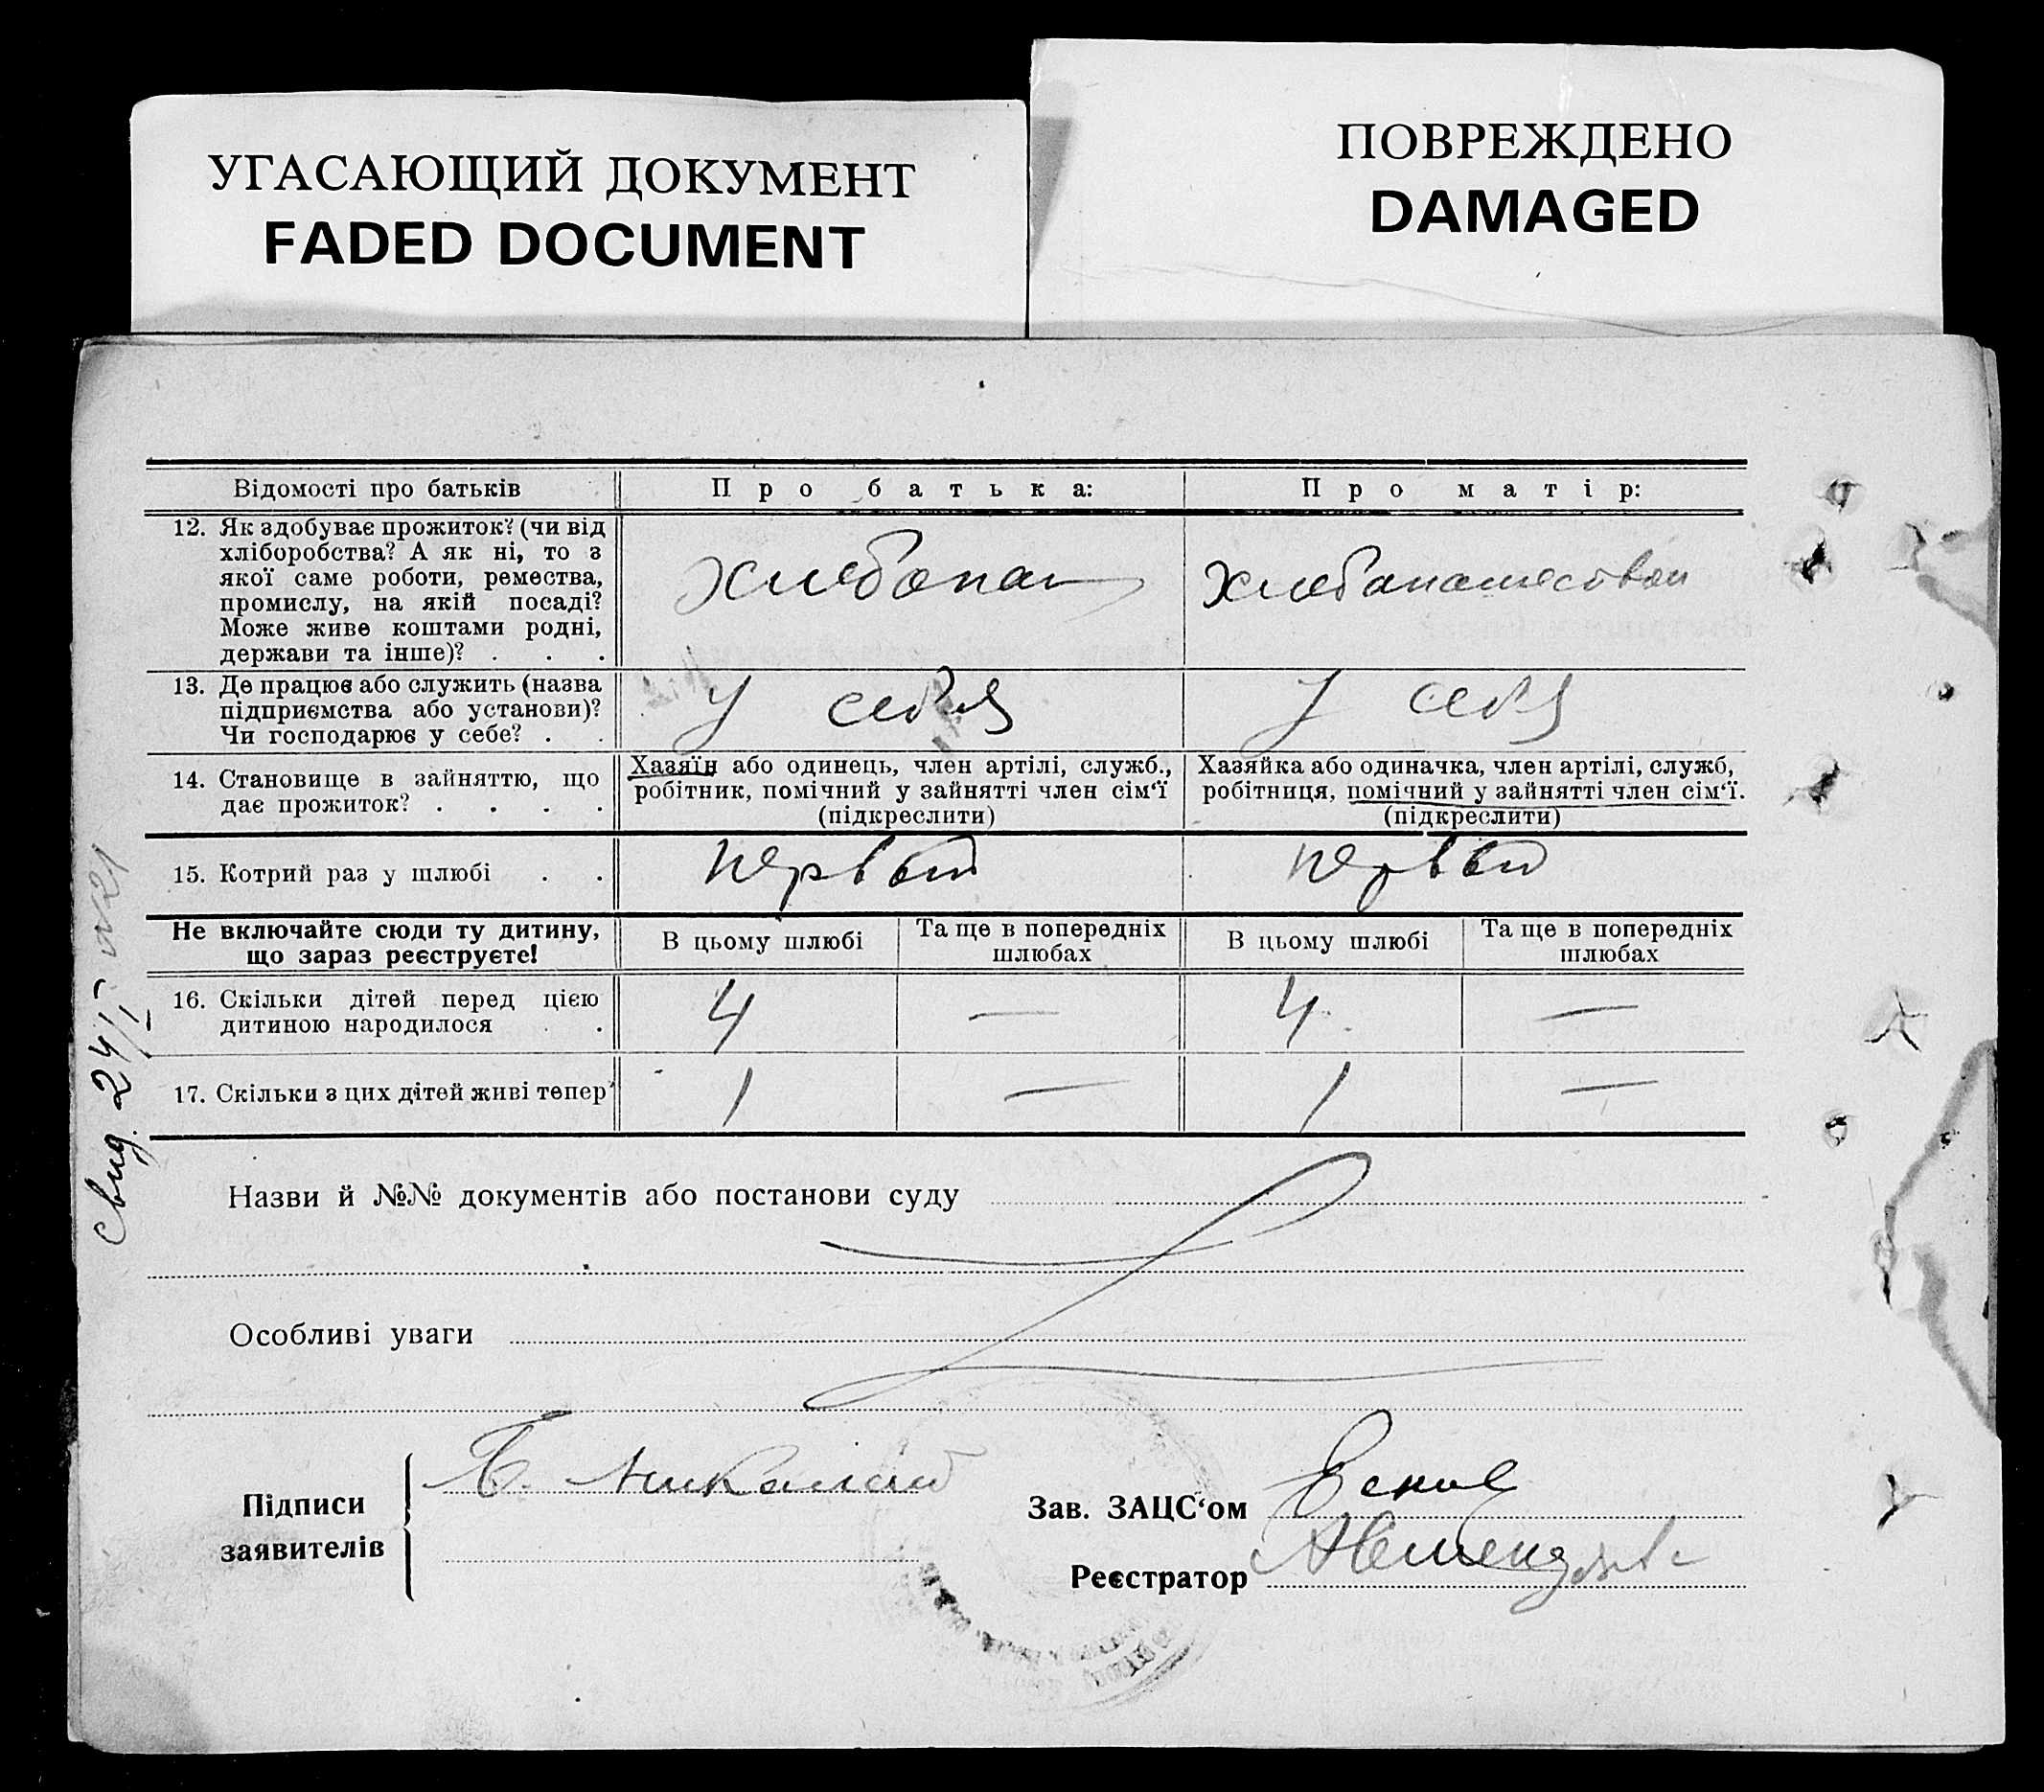 УГАСАЮЩИЙ ДОКУМЕНТ
FADED DOCUMENT
ПОВРЕЖДЕНО
DAMAGED
Відомості про батьків
Про батька:
Про матір:
12. Як здобуває прожиток? (чи від
хліборобства? А як ні, то з
якої саме роботи, ремества,
промислу, на якій посаді?
Може живе коштами родні,
держави та інше)? . . .
хлебопаш
хлебапашеством
13. Де працює або служить (назва
підприємства або установи)?
Чи господарює у себе? . .
У себя
У себя
14. Становище в зайняттю, що
дає прожиток? . . . .
Хазяїн або одинець, член артілі, служб.,
робітник, помічний у зайнятті член сім‘ї
(підкреслити)
Хазяйка або одиначка, член артілі, служб,
робітниця, помічний у зайнятті член сім‘ї.
(підкреслити)
15. Котрий раз у шлюбі . .
первый
первый
Не включайте сюди ту дитину,
що зараз реєструєте!
В цьому шлюбі
Та ще в попередніх
шлюбах
В цьому шлюбі
Та ще в попередніх
шлюбах
16. Скільки дітей перед цією
дитиною народилося . .
4
—
4
—
17. Скільки з цих дітей живі тепер
1
—
1
—
Свид. 24/I
Назви й №№ документів або постанови суду
Особливі уваги
Підписи
заявителів
Зав. ЗАЦС‘ом
Реєстратор